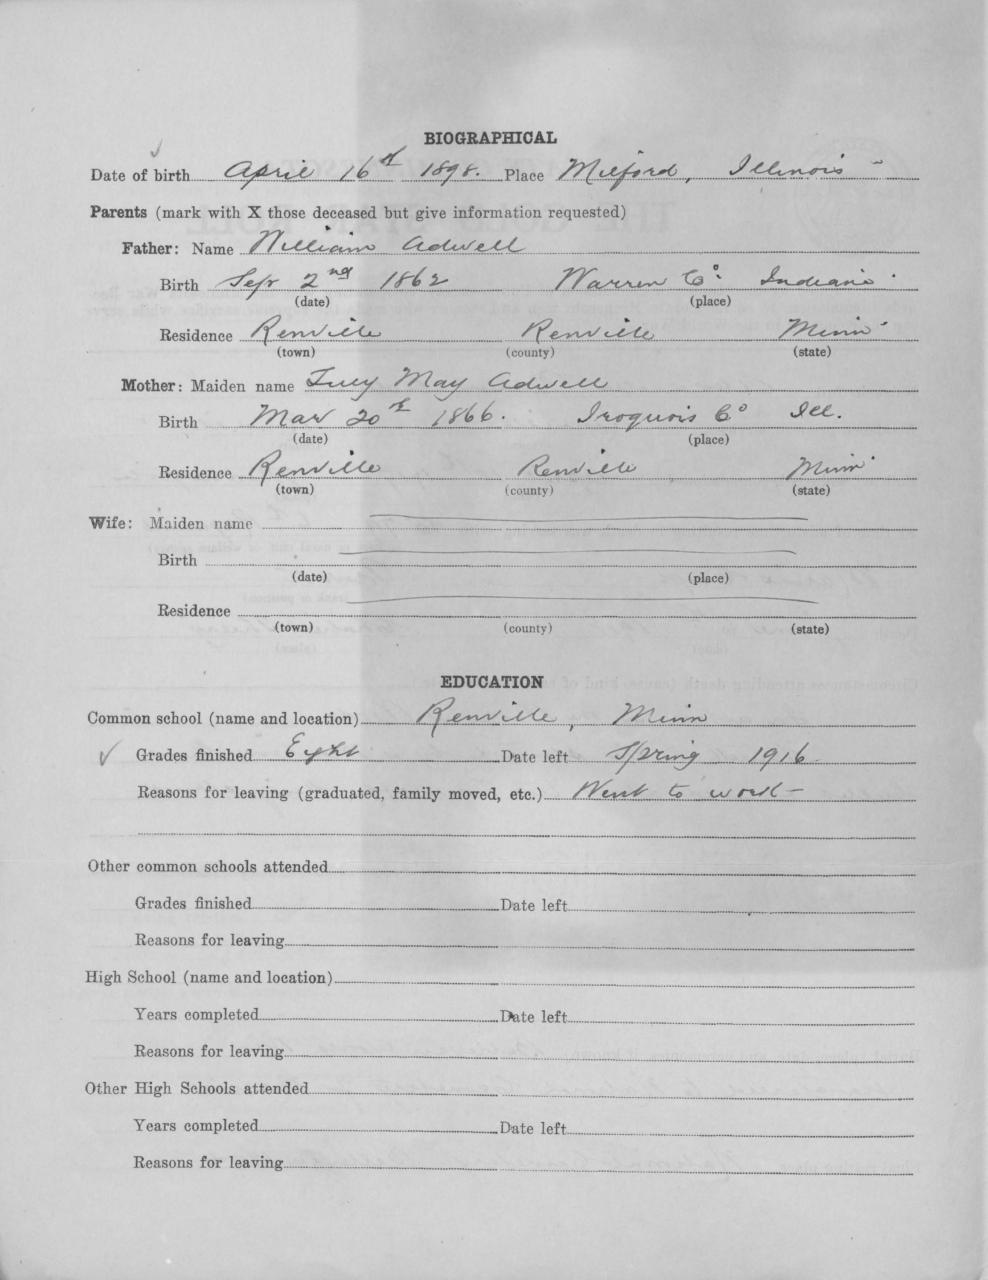 BIOGRAPHICAL
Date of birth April 16th 1898. Place Milford, Illinois
Parents (mark with X those deceased but give information requested)
Father: Name William Adwell
Birth Sep 2nd 1862 Warren Co. Indiana
(date) (place)
Residence Renville Renville Minn
(town) (county) (state)
Mother: Maiden name Lucy May Adwell
Birth Mar 20th 1866. Iroquois Co Ill.
(date) (place)
Residence Renville Renville Minn
(town) (county) (state)
Wife: Maiden name
Birth
(date) (place)
Residence
(town) (county) (state)
EDUCATION
Common school (name and location) Renville, Minn
Grades finished Eight Date left Spring 1916
Reasons for leaving (graduated, family moved, etc.) Went to work
Other common schools attended
Grades finished Date left
Reasons for leaving
High School (name and location)
Years completed Date left
Reasons for leaving
Other High Schools attended
Years completed Date left
Reasons for leaving